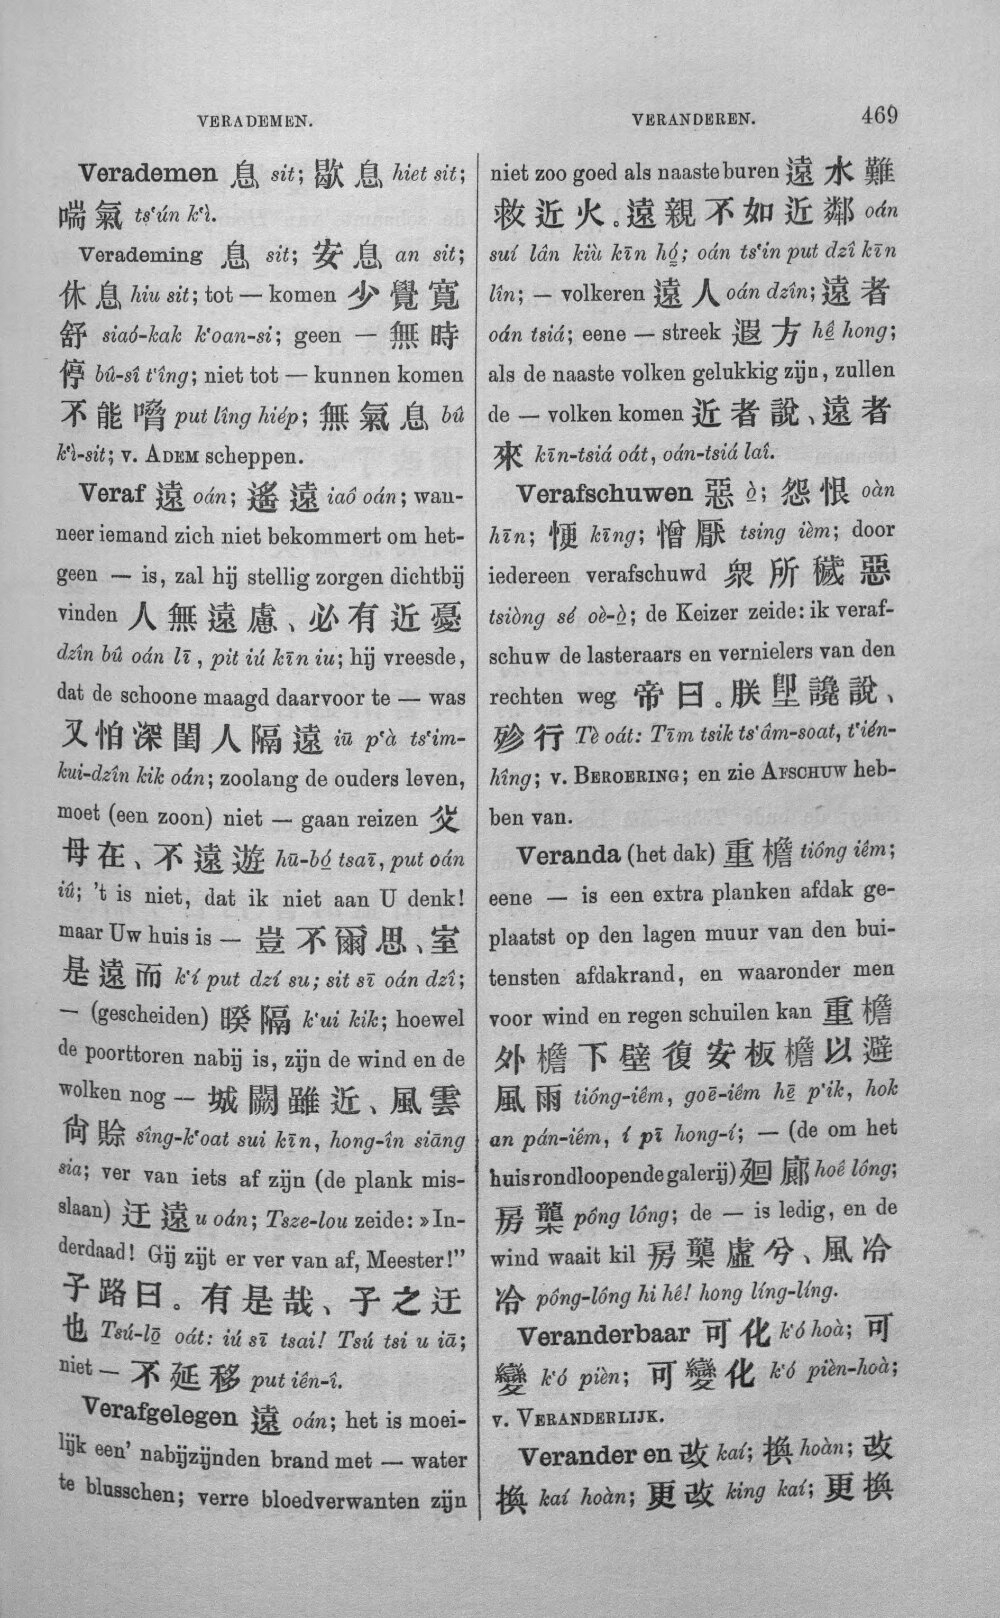 VERADEMEN.
VERANDEREN.
469
Verademen 息 sit; 歇息 hiet sit;
喘氣 ts‘ún k‘ì.
Verademing 息 sit; 安息 an sit;
休息 hiu sit; tot — komen 少覺寬
舒 siaó-kak k‘oan-si; geen — 無時
停 bû-sî t‘îng; niet tot — kunnen komen
不能噏 put lîng hiép; 無氣息 bû
k‘ì-sit; v. ADEM scheppen.
Veraf 遠 oán; 遙遠 iaô oán; wan-
neer iemand zich niet bekommert om het-
geen — is, zal hij stellig zorgen dichtbij
vinden 人無遠慮、必有近憂
dzîn bû oán lī, pit iú kīn iu; hij vreesde,
dat de schoone maagd daarvoor te — was
又怕深閨人隔遠 iū p‘à ts‘im-
kui-dzîn kik oán; zoolang de ouders leven,
moet (een zoon) niet — gaan reizen 父
母在、不遠遊 hū-bó̱ tsaī, put oán
iû; ’t is niet, dat ik niet aan U denk!
maar Uw huis is — 豈不爾思、室
是遠而 k‘í put dzí su; sit sī oán dzî;
— (gescheiden) 睽隔 k‘ui kik; hoewel
de poorttoren nabij is, zijn de wind en de
wolken nog — 城闕雖近、風雲
尙賒 sîng-k‘oat sui kīn, hong-în siāng
sia; ver van iets af zijn (de plank mis-
slaan) 迂遠 u oán; Tsze-lou zeide: »In-
derdaad! Gij zijt er ver van af, Meester!”
子路曰。有是哉、子之迂
也 Tsú-lō̱ oát: iú sī tsai! Tsú tsi u iā;
niet — 不延移 put iên-î.
Verafgelegen 遠 oán; het is moei-
lijk een’ nabijzijnden brand met — water
te blusschen; verre bloedverwanten zijn
niet zoo goed als naaste buren 遠水難
救近火。遠親不如近鄰 oán
suí lân kiù kīn hó̱; oán ts‘in put dzî kīn
lîn; — volkeren 遠人 oán dzîn; 遠者
oán tsiá; eene — streek 遐方 hê̱ hong;
als de naaste volken gelukkig zijn, zullen
de — volken komen 近者說、遠者
來 kīn-tsiá oát, oán-tsiá laî.
Verafschuwen 惡 ò̱; 怨恨 oàn
hīn; kīng; 憎厭 tsing ièm; door
iedereen verafschuwd 衆所穢惡
tsiòng sé oè-ò̱; de Keizer zeide: ik veraf-
schuw de lasteraars en vernielers van den
rechten weg 帝曰。朕堲讒說、
殄行 Tè oát: Tīm tsik ts‘âm-soat, t‘ién-
hîng; v. BEROERING; en zie AFSCHUW heb-
ben van.
Veranda (het dak) 重檐 tióng iêm;
eene — is een extra planken afdak ge-
plaatst op den lagen muur van den bui-
tensten afdakrand, en waaronder men
voor wind en regen schuilen kan 重檐
外檐下壁復安板檐以避
風雨 tióng-iêm, goē-iêm hē̱ p‘ik, hok
an pán-iêm, í pī hong-í; — (de om het
huis rondloopende galerij) 廻廊 hoê lông;
房櫳 pông lông; de — is ledig, en de
wind waait kil 房櫳虛兮、風冷
冷 pông-lông hi hê! hong líng-líng.
Veranderbaar 可化 k‘ó hoà; 可
變 k‘ó pièn; 可變化 k‘ó pièn-hoà;
v. VERANDERLIJK.
Veranderen 改 kaí; 換 hoàn; 改
換 kaí hoàn; 更改 king kaí; 更換